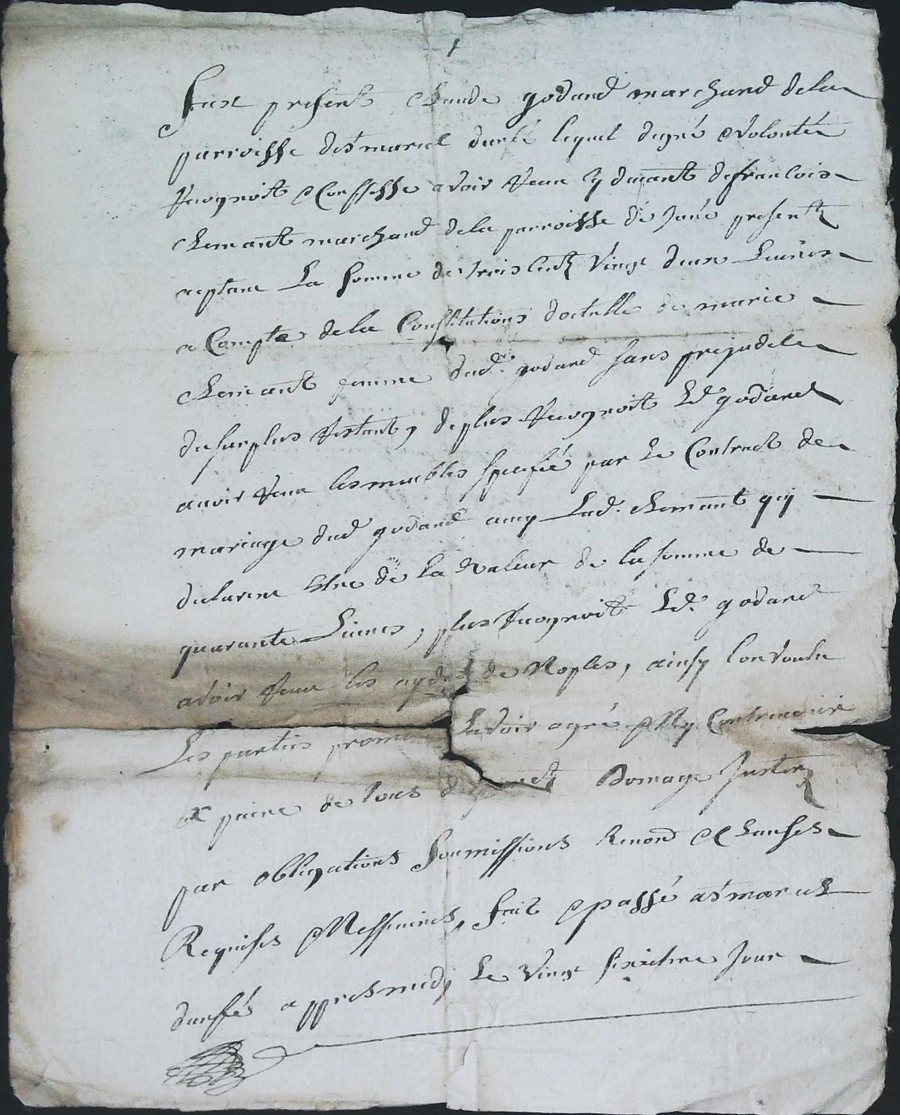 Fust present Claude godard marchand de la
parroisse de st marcel durfé lequel de gré & volonté
Recognoit & Confesse avoir Receu cy davant de francois
Clemant marchand de la parroisse de present
aceptant La somme de trois centz vingt deux Livres
a Compte de la Constitutions dotalle de marie
Clemant femme dud. godard sans prejudice
du surplus restant, de plus Recognoit Led. godard
avoir Receu les meubles speciffié par le Contract de
mariage dud godard avec Lad. Clemant qu'il
declarent Etre de la valeur de la somme de
quarante Livres, plus Recognoit Led. godard
avoir Receu les de Noples, ainsy l'on voulu
Les parties Lavoir agréé & Ny Contrevenir
a paine de tous Domage Interetz
par obligations soumissions Renond & Clauses
Requises & Nessaires, fait & passé a st marcel
durfés appres midy Le Vingt sixieme Jour